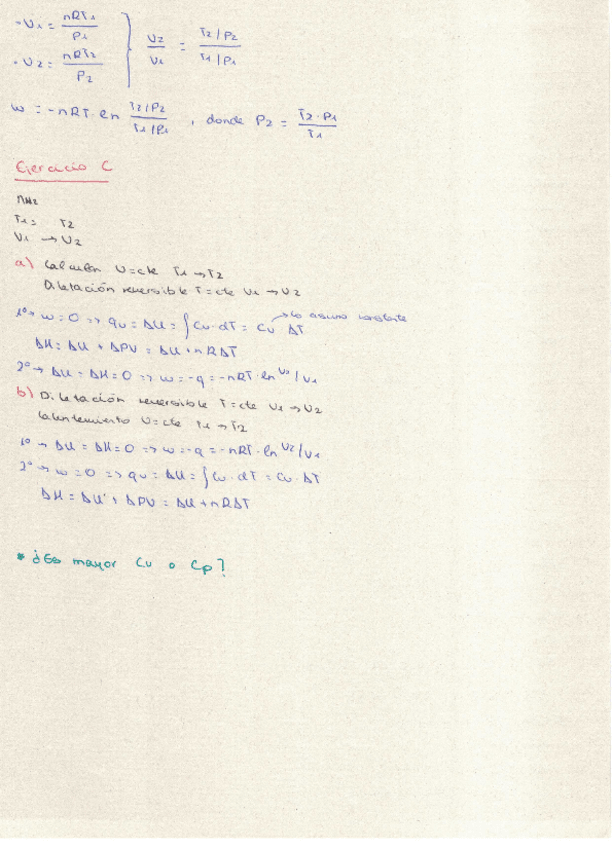 · V₁ = nRT₁/P₁ } V₂/V₁ = T₂/P₂ / T₁/P₁
· V₂ = nRT₂/P₂
w = -nRT · ln T₂/P₂ / T₁/P₁ , donde P₂ = T₂·P₁/T₁
Ejercicio C
nN₂
T₁ = T₂
V₁ → V₂
a) Calentón V=cte T₁ → T₂
Dilatación reversible T=cte V₁ → V₂
1º → w = 0 => qv = ΔU = ∫Cv·dT = Cv ΔT → lo asumo constante
ΔH = ΔU + ΔPV = ΔU + nRΔT
2º → ΔU = ΔH = 0 => w = -q = -nRT·ln V₂/V₁
b) Dilatación reversible T=cte V₁ → V₂
Calentamiento V=cte T₁ → T₂
1º → ΔU = ΔH = 0 => w = -q = -nRT·ln V₂/V₁
2º → w = 0 => qv = ΔU = ∫Cv·dT = Cv·ΔT
ΔH = ΔU + ΔPV = ΔU + nRΔT
* ¿Es mayor Cv o Cp?